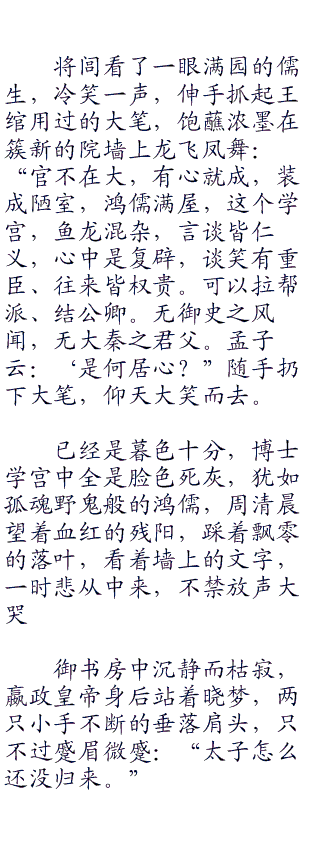 将闾看了一眼满园的儒
生，冷笑一声，伸手抓起王
绾用过的大笔，饱蘸浓墨在
簇新的院墙上龙飞凤舞：
“官不在大，有心就成，装
成陋室，鸿儒满屋，这个学
宫，鱼龙混杂，言谈皆仁
义，心中是复辟，谈笑有重
臣、往来皆权贵。可以拉帮
派、结公卿。无御史之风
闻，无大秦之君父。孟子
云：‘是何居心？”随手扔
下大笔，仰天大笑而去。
已经是暮色十分，博士
学宫中全是脸色死灰，犹如
孤魂野鬼般的鸿儒，周清晨
望着血红的残阳，踩着飘零
的落叶，看着墙上的文字，
一时悲从中来，不禁放声大
哭
御书房中沉静而枯寂，
嬴政皇帝身后站着晓梦，两
只小手不断的垂落肩头，只
不过蹙眉微蹙：“太子怎么
还没归来。”